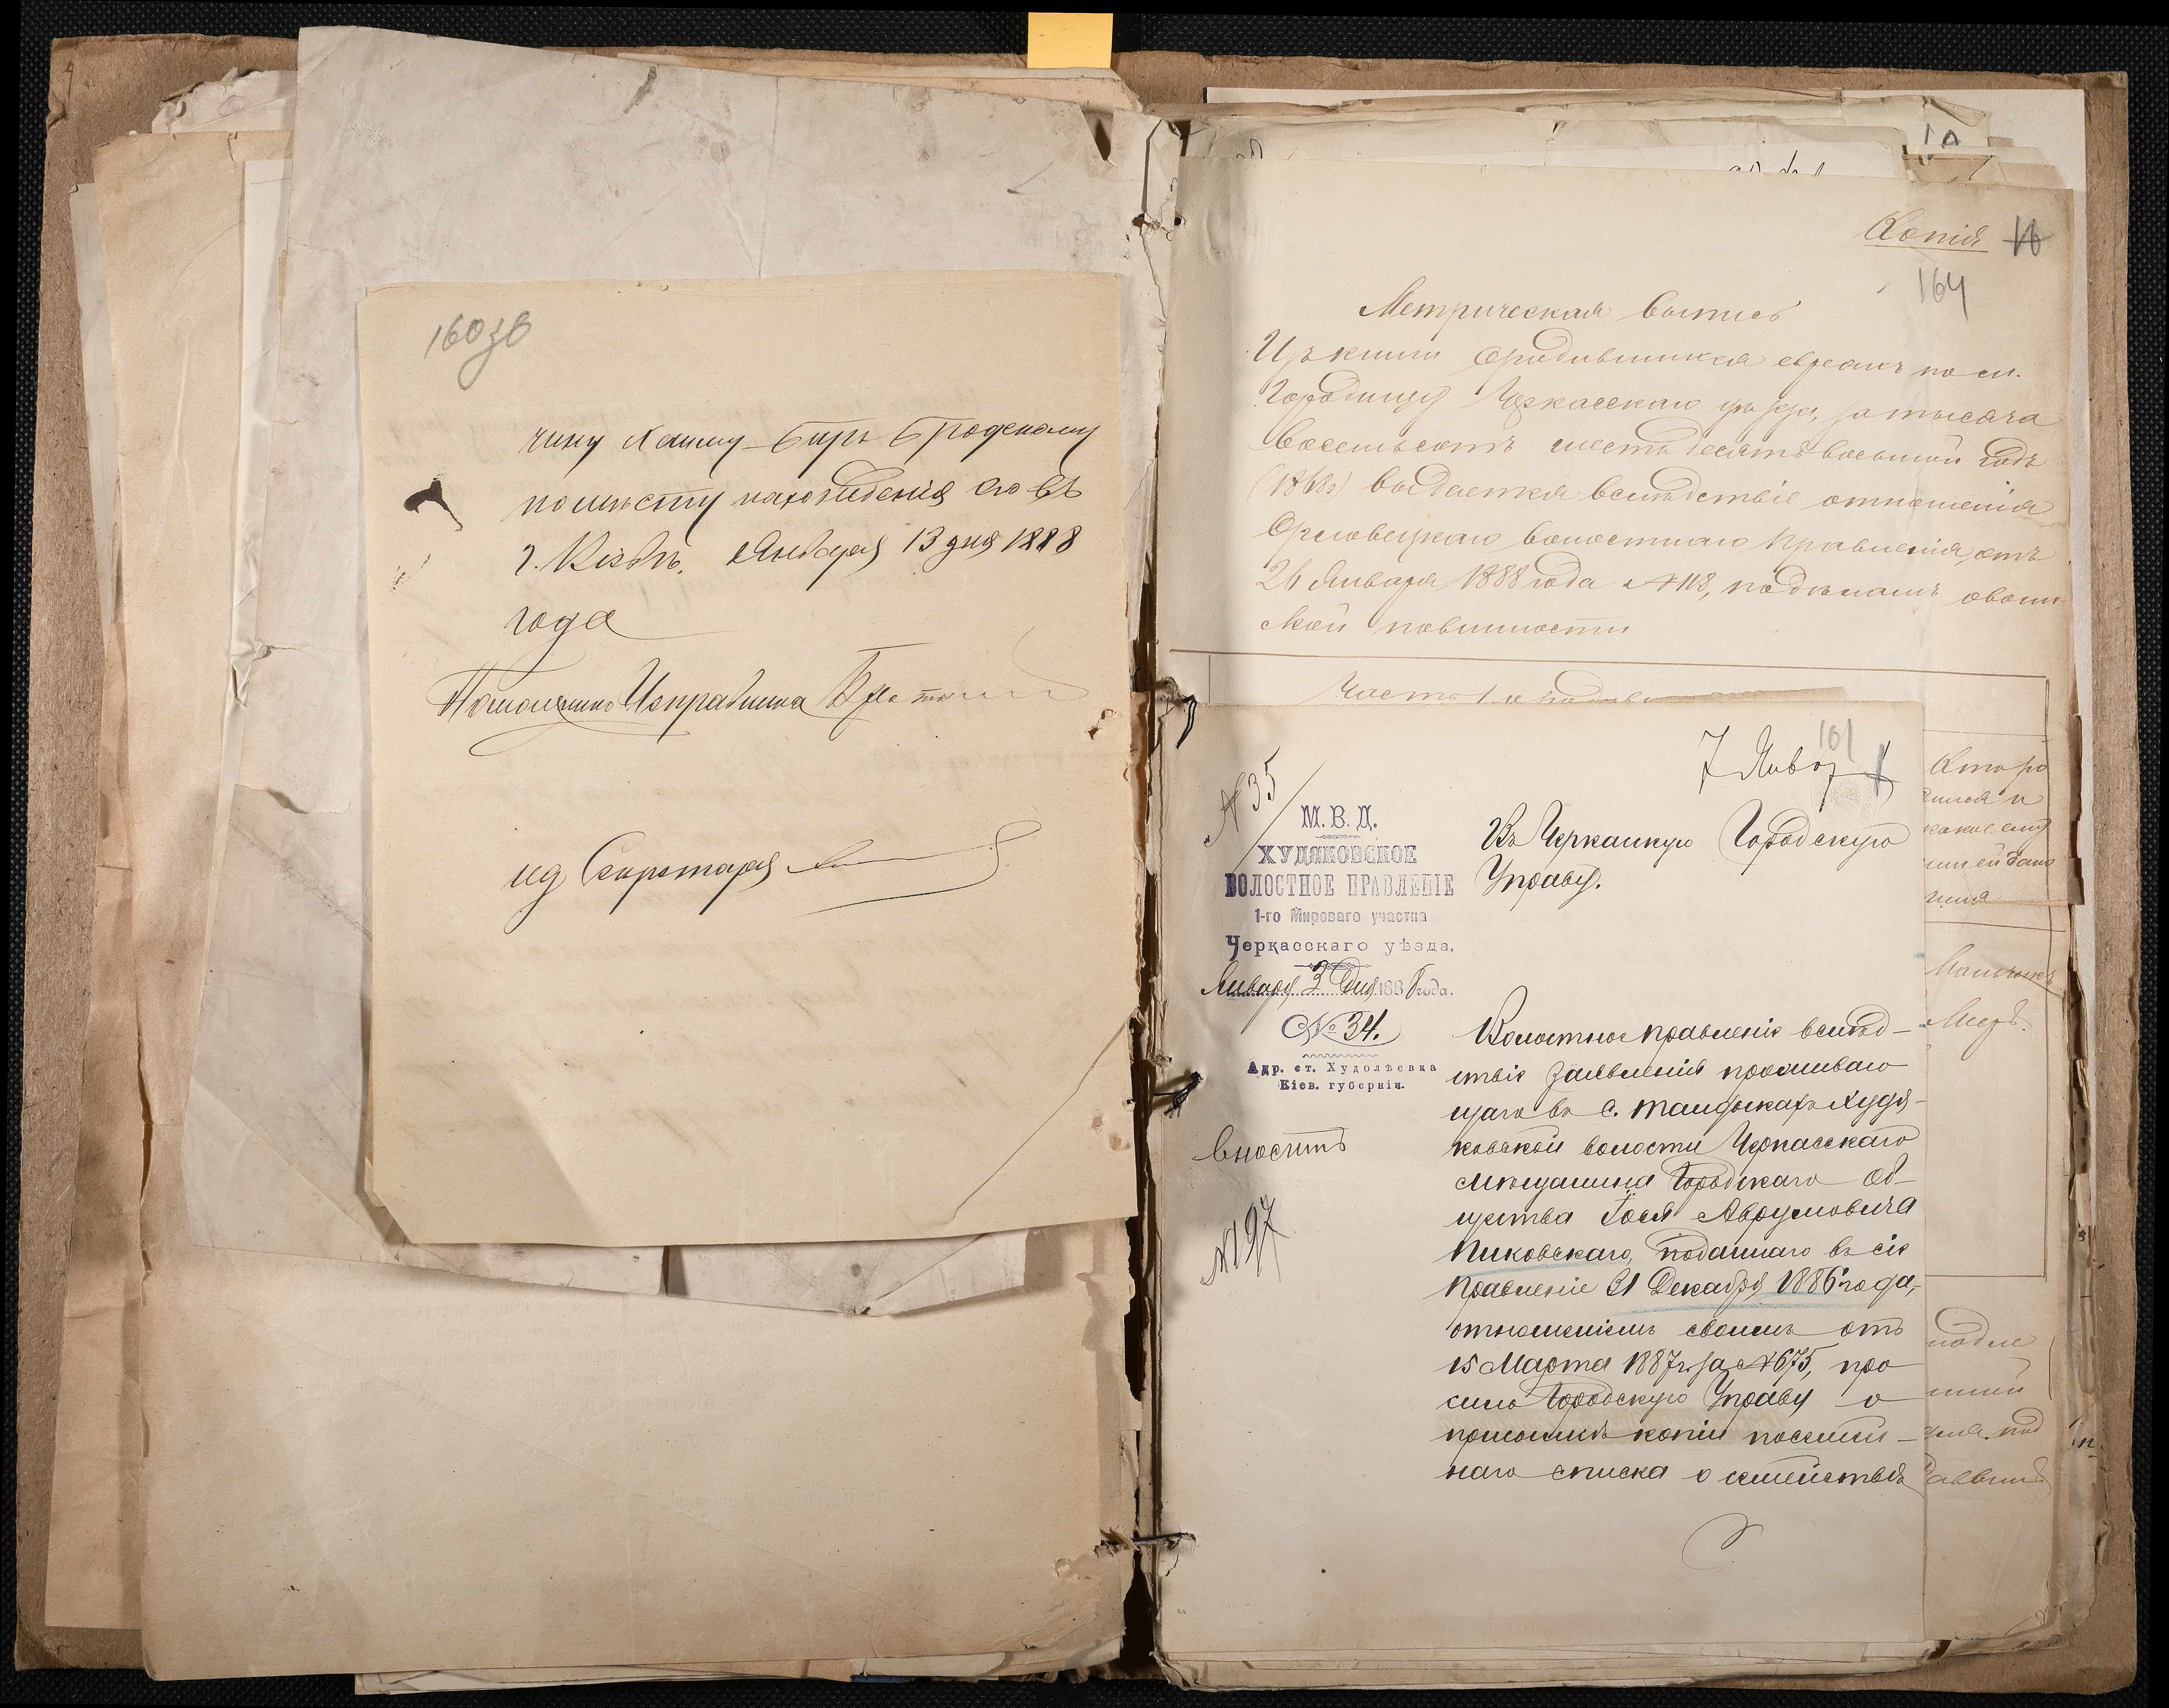 160 зв
чину Хаиму-Беръ Бродскому
по мѣсту нахожденія его въ
г. Кіевѣ. Января 13 дня 1888
года
Помощникъ Исправника
ид Секретаря
Копія 16
164
Метрическая выпись
Изъ книги о родившихся евреяхъ по м.
Городищу Черкасскаго уѣзда, за тысяча
восемьсотъ шестьдесятъ восьмой годъ
(1868) выдается вслѣдствіе отношенія
Орловецкаго волостнаго Правленія, отъ
26 Января 1888 года №118, по дѣламъ о воин
ской повинности
Часть I о
161
7 Янв
№35
М. В. Д.
ХУДЯКОВСКОЕ
ВОЛОСТНОЕ ПРАВЛЕНІЕ
1-го Мироваго участка
Черкасскаго уѣзда.
Января 2 дня 1888 года.
№ 34.
Адр. ст. Худолѣевка
Кіев. губерніи.
вносить
№197
Въ Черкаскую Городскую
Управу.
Волостное правленіе вслѣд-
ствіе заявленія проживаю
щаго въ с. Талдыкахъ Худя-
ковской волости Черкасскаго
мѣщанина Городскаго Об-
щества Іося Аврумовича
Пиковскаго, поданнаго въ сіе
правленіе 31 Декабря 1886 года,
отношеніемъ своимъ отъ
15 Марта 1887 г. за №675, про
сило Городскую Управу о
высылкѣ копіи посемей-
наго списка о семействѣ
Кто ро
дился и
какое ему
или ей дано
имя
Мальчикъ